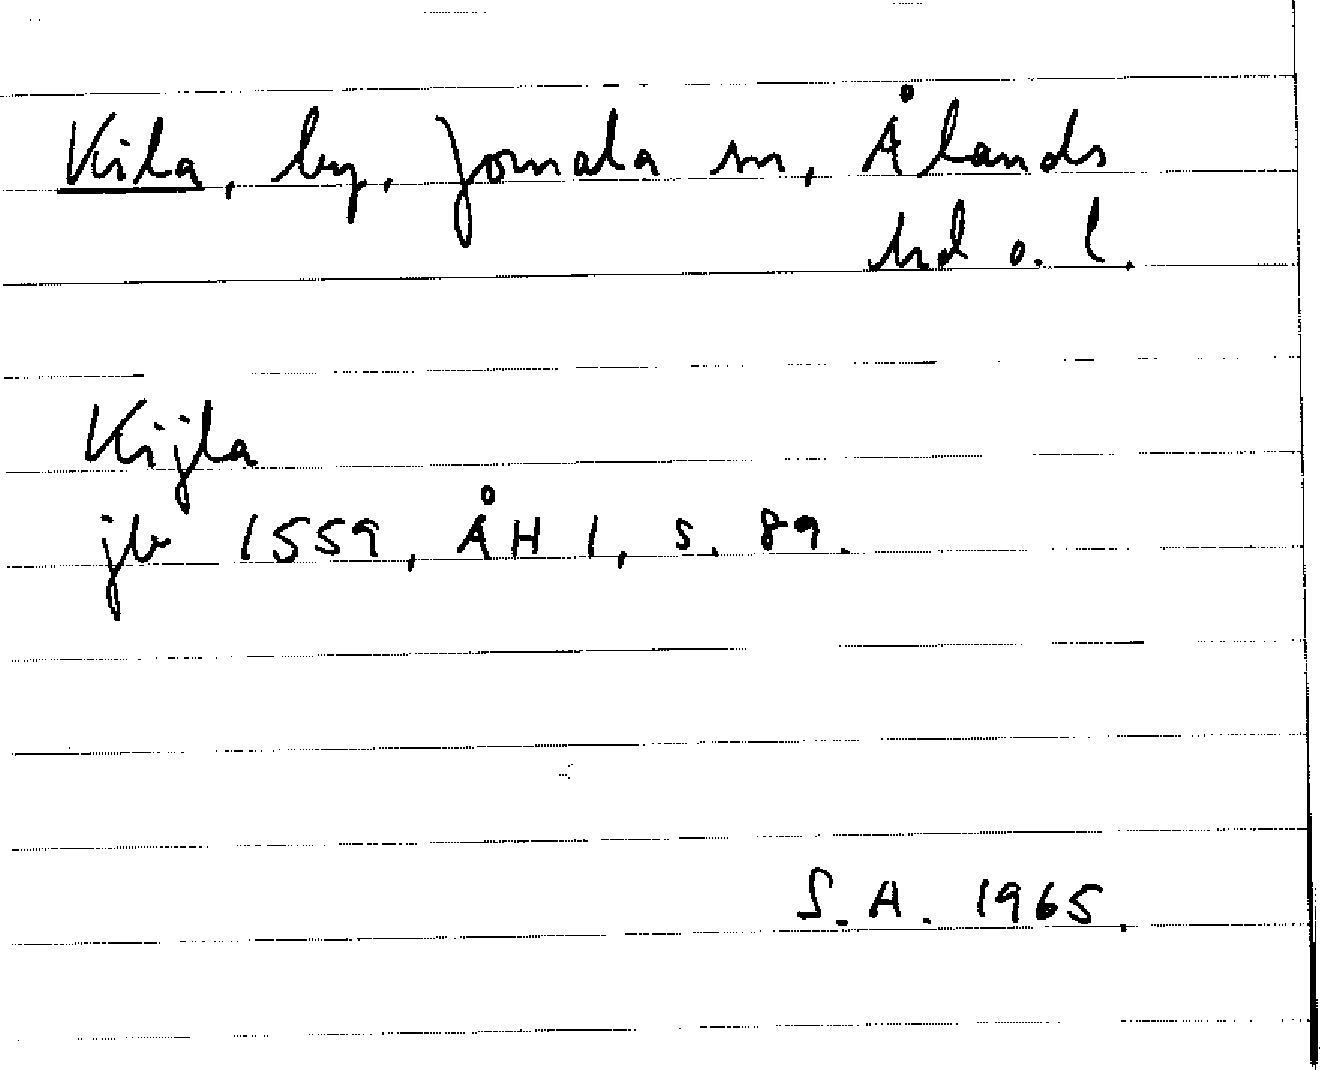 Kila, by, Jomala sn, Ålands
hd o. l.
Kijla
jb 1559, ÅH 1, s. 89.
S.A. 1965.